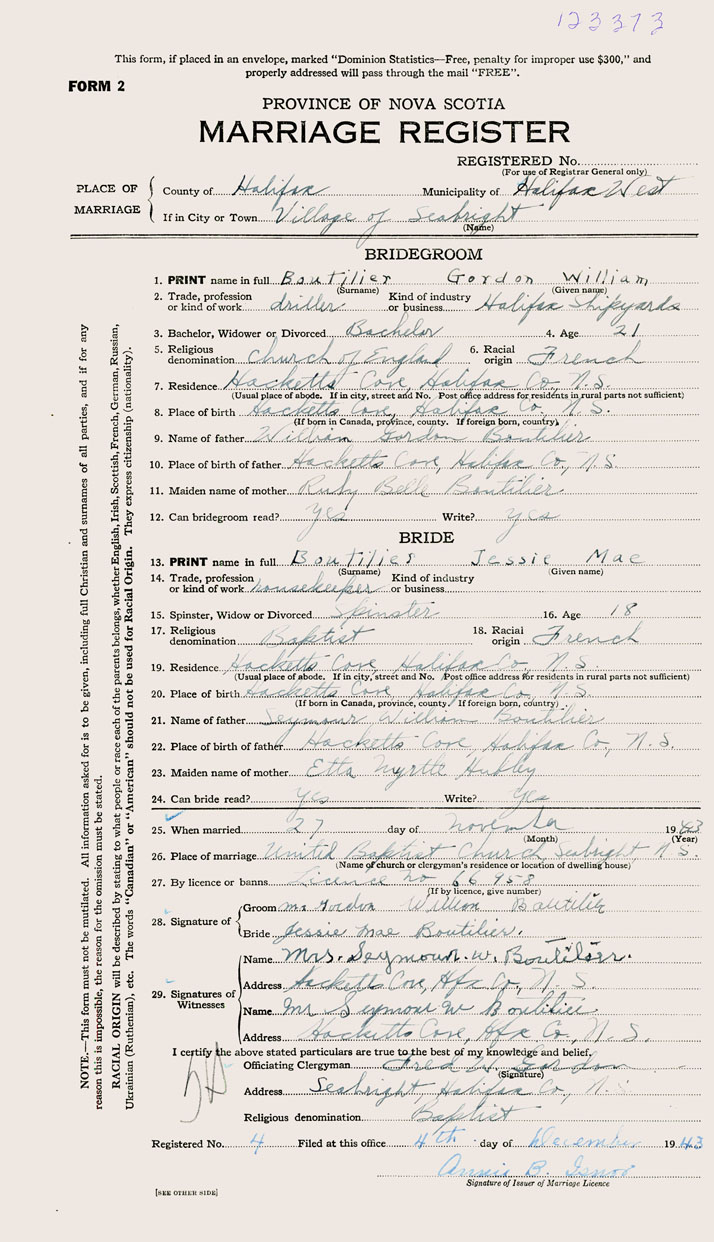 123373
This form, if placed in an envelope, marked "Dominion Statistics—Free, penalty for improper use $300," and
properly addressed will pass through the mail "FREE".
FORM 2
PROVINCE OF NOVA SCOTIA
MARRIAGE REGISTER
REGISTERED No.
(For use of Registrar General only)
PLACE OF MARRIAGE
County of Halifax Municipality of Halifax West
If in City or Town Village of Seabright
(Name)
BRIDEGROOM
1. PRINT name in full Boutilier Gordon William
(Surname) (Given name)
2. Trade, profession or kind of work driller Kind of industry or business Halifax Shipyards
3. Bachelor, Widower or Divorced Bachelor 4. Age 21
5. Religious denomination Church of England 6. Racial origin French
7. Residence Hacketts Cove, Halifax Co, N.S.
(Usual place of abode. If in city, street and No. Post office address for residents in rural parts not sufficient)
8. Place of birth Hacketts Cove, Halifax Co, N.S.
(If born in Canada, province, county. If foreign born, country)
9. Name of father William Gordon Boutilier
10. Place of birth of father Hacketts Cove, Halifax Co, N.S.
11. Maiden name of mother Ruby Belle Boutilier
12. Can bridegroom read? Yes Write? yes
BRIDE
13. PRINT name in full Boutilier Jessie Mae
(Surname) (Given name)
14. Trade, profession or kind of work housekeeper Kind of industry or business
15. Spinster, Widow or Divorced Spinster 16. Age 18
17. Religious denomination Baptist 18. Racial origin French
19. Residence Hacketts Cove, Halifax Co, N.S.
(Usual place of abode. If in city, street and No. Post office address for residents in rural parts not sufficient)
20. Place of birth Hacketts Cove, Halifax Co, N.S.
(If born in Canada, province, county. If foreign born, country)
21. Name of father Seymour William Boutilier
22. Place of birth of father Hacketts Cove, Halifax Co, N.S.
23. Maiden name of mother Etta Myrtle Hubley
24. Can bride read? Yes Write? Yes
25. When married 27 day of November 1943
(Month) (Year)
26. Place of marriage United Baptist Church, Seabright N.S.
(Name of church or clergyman's residence or location of dwelling house)
27. By licence or banns Licence no 66958
(If by licence, give number)
28. Signature of
Groom Mr Gordon William Boutilier
Bride Jessie Mae Boutilier.
29. Signatures of Witnesses
Name Mrs. Seymour. W. Boutilier.
Address Hacketts Cove, Hfx Co., N.S.
Name Mr Seymour W Boutilier
Address Hacketts Cove, Hfx Co., N.S.
I certify the above stated particulars are true to the best of my knowledge and belief.
Officiating Clergyman Fred W. Gordon
(Signature)
Address Seabright, Halifax Co, N.S.
Religious denomination Baptist
Registered No. 4 Filed at this office 4th day of December 1943
Annie B. Isnor
Signature of Issuer of Marriage Licence
[SEE OTHER SIDE]
NOTE.—This form must not be mutilated. All information asked for is to be given, including full Christian and surnames of all parties, and if for any
reason this is impossible, the reason for the omission must be stated.
RACIAL ORIGIN will be described by stating to what people or race each of the parents belongs, whether English, Irish, Scottish, French, German, Russian,
Ukrainian (Ruthenian), etc. The words "Canadian" or "American" should not be used for Racial Origin. They express citizenship (nationality).